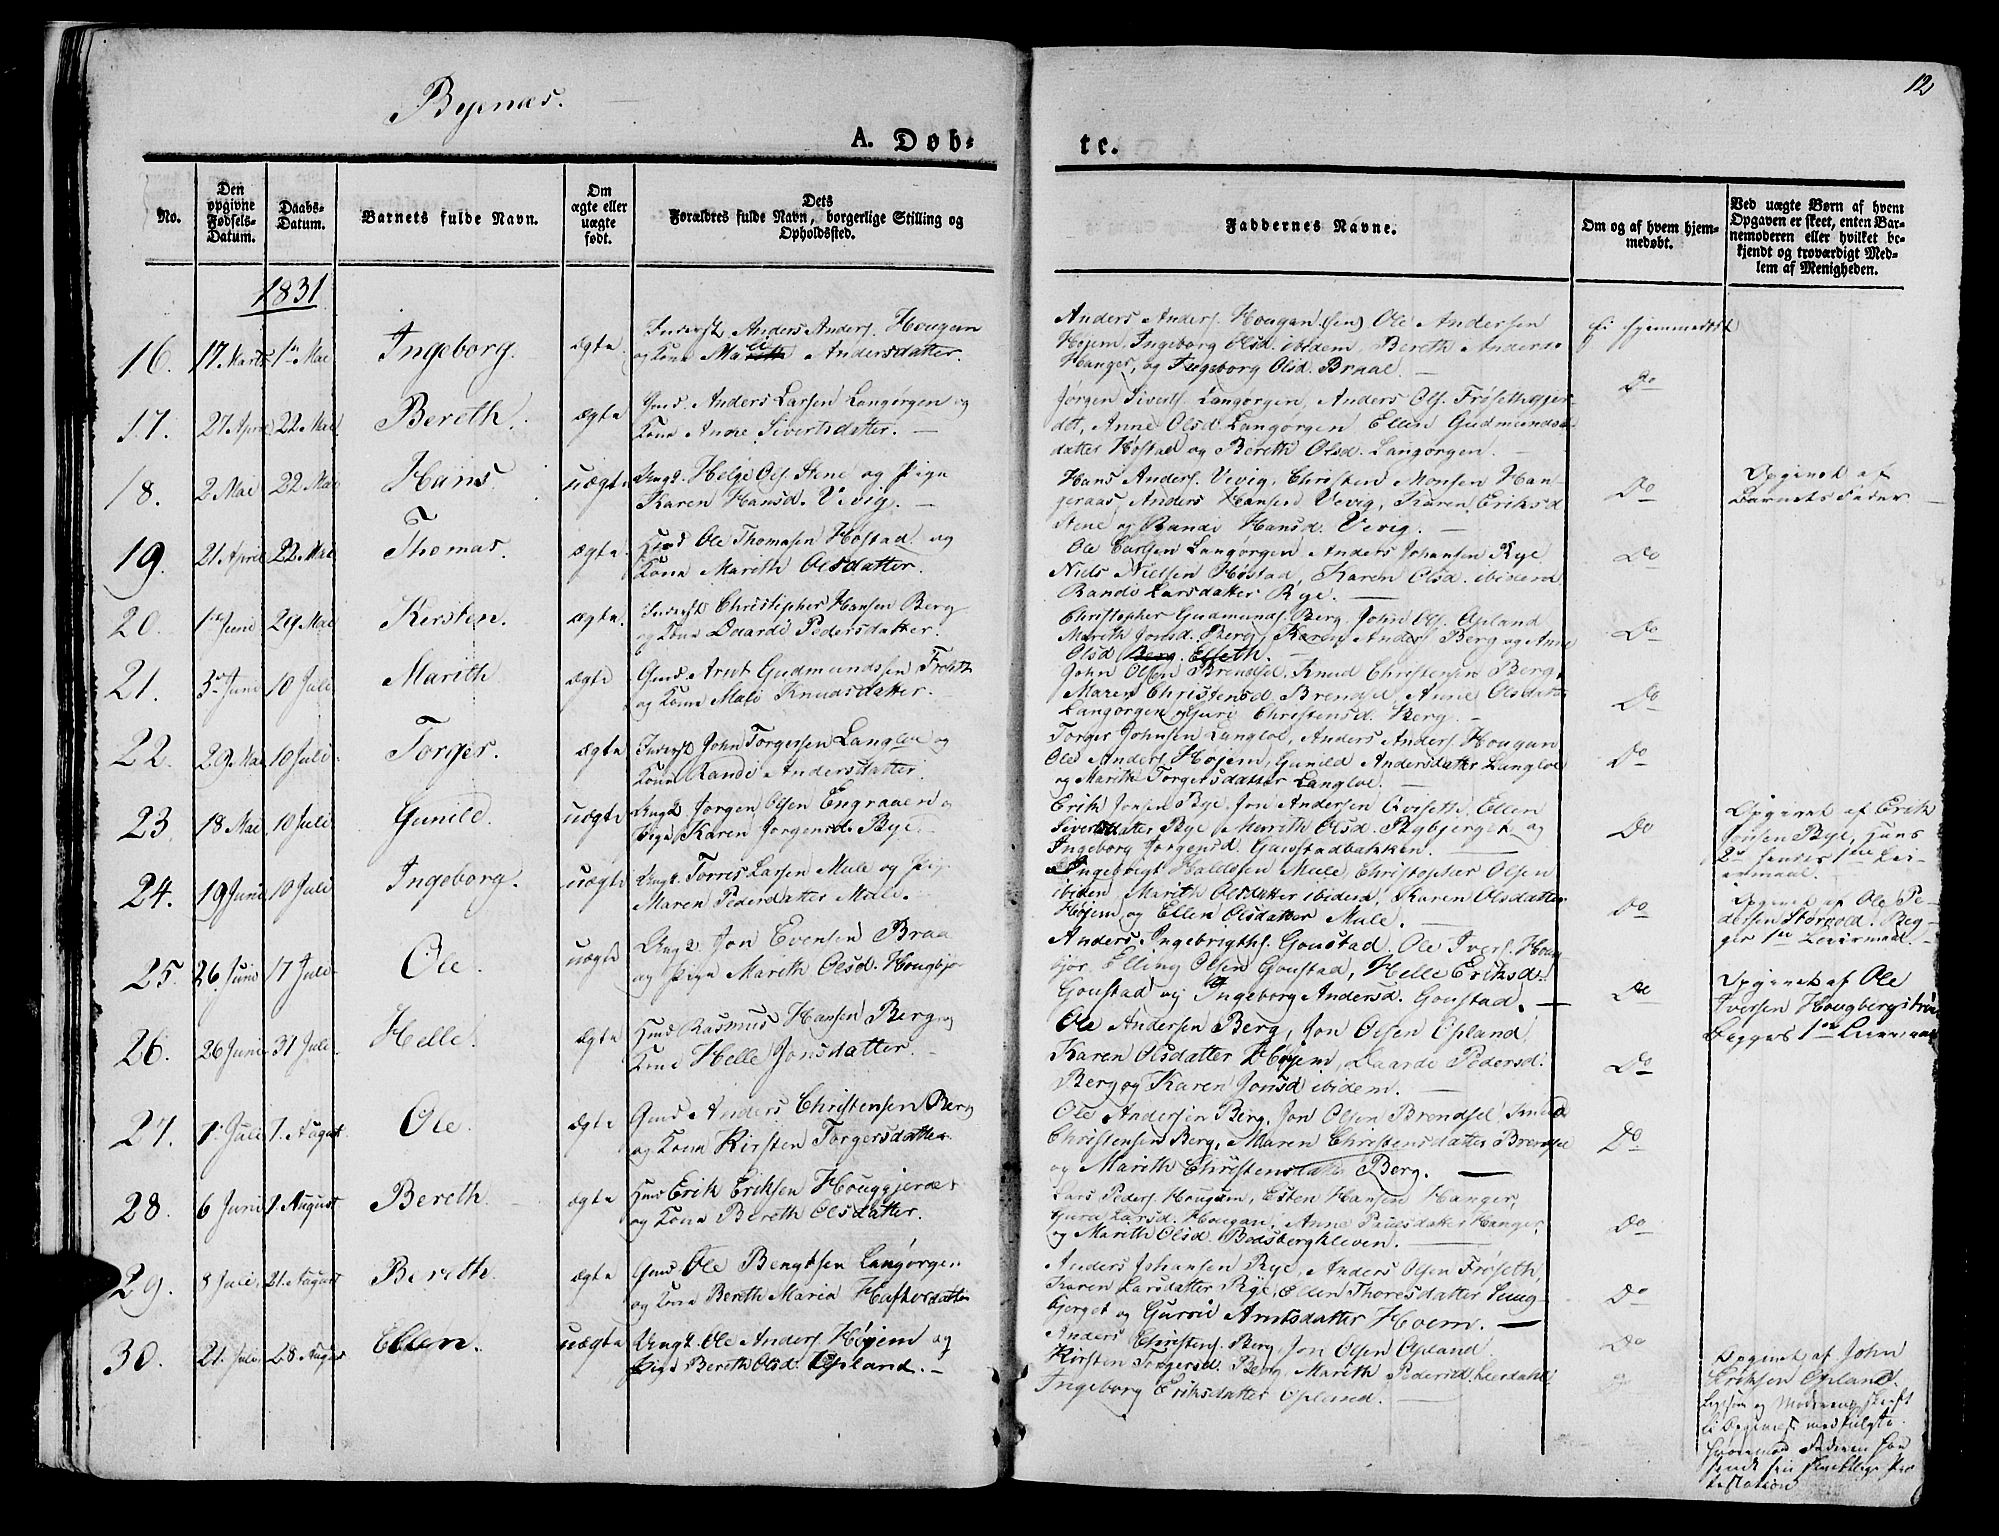 Byenæs.
12
A. Døb-
te.
No.
Den opgivne Fødsels-Datum.
Daabs-Datum.
Barnets fulde Navn.
Om ægte eller uægte født.
Dets Forældres fulde Navn, borgerlige Stilling og Opholdssted.
Faddernes Navne.
Om og af hvem hjem-
medøbt.
Ved uægte Børn af hvem
Opgaven er skeet, enten Bar-
nemoderen eller hvilket be-
kjendt og troværdigt Med-
lem af Menigheden.
1831
16. 17 Marts 1ste Mai Ingeborg. ægte Inderst Anders Anders. Hougan
og Kone Mali Andersdatter.
Anders Anders. Hougan (sen) Ole Andersen
Højem, Ingeborg Olsd. ibidem, Bereth Anders
Hanger, og Ingeborg Olsd. Braal.
Ei hjemmedøbt
17. 27 April 22 Mai Bereth. ægte Gmd. Anders Larsen Langørgen og
Kone Anne Sivertsdatter.
Jørgen Sivertss. Langørgen, Anders Ols. Frøsethgjer-
det, Anne Olsd. Langørgen Ellen Gudmunds-
datter Høstad og Bereth Olsd. Langørgen.
Do
18. 2 Mai 22 Mai Hans. uægte Ungk. Helge Ols. Stene og Pige
Karen Hansd. Vevig.
Hans Anders. Vevig, Christen Monsen Han-
geraas, Anders Hansen Vevig, Karen Eriksd
Stene og Randi Hansd. Vevig.
Do
Opgivet af
Barnets Fader
19. 21 April 22 Mai Thomas. ægte. Hmd Ole Thomasen Høstad og
Kone Mareth Olsdatter.
Ole Carlsen Langørgen, Anders Johansen Rye
Niels Nielsen Høstad, Karen Olsd. ibidem
Randi Larsdatter Rye.
Do
20. 1ste Juni 29 Mai Kersten. ægte. Inderst Christopher Hansen Berg
og Kone Daardi Pedersdatter.
Christopher Gudmunds. Berg, John Ols. Opland
Mareth Jonsd. Berg, Karen Anders Berg og Anne
Olsd Berg. Elseth.
Do
21. 3die Juni 10 Juli Mareth. ægte Gmd. Arnt Gudmundssen Frøseth
og Kone Mali Knudsdatter.
John Olsen Brendsel. Knud Christensen Berg,
Maren Christensd. Brendsel, Anne Olsdat
Langørgen og Guri Christensd. Berg.
Do
22. 29 Mai 10 Juli Torger. ægte Inderst John Torgersen Langloe og
Kone Randi Andersdatter.
Torger Johnsen Langloe, Anders Anders. Hougan
Ole Anders. Højem, Gunild Andersdatter Langloe
og Mareth Torgersdatter Langloe.
Do
23. 18 Mai 10 Juli Gunild. uægte Ungk. Jørgen Olsen Engraaen og
Pige Karen Jørgensd. Bye.
Erik Jonsen Bye, Jon Andersen Qviseth, Ellen
Sivertsdatter Bye, Mareth Olsd. Rybjerget og
Ingeborg Jørgensd. Gaustadbakken.
Do
Opgivet af Erik
Jonsen Bye, hans
2det hendes 1ste Lei-
ermaal.
24. 19 Juni 10 Juli Ingeborg. uægte Ungk. Torris Larsen Mule og Pige
Maren Pedersdatter Mule.
Ingebrigt Haldosen Mule, Christopher Olsen
ibidem Mareth Olsdatter ibidem, Karen Olsdatter
Højem og Ellen Olsdatter Mule.
Do
Opgivet af Ole Pe-
dersen Storvold. Beg-
ges 1ste Leiermaal.
25. 26 Juni 17 Juli Ole. uægte Ungk. Jon Evensen Braa
og Pige Mareth Olsd. Hougbjør
Anders Ingebrigths. Goustad, Ole Ivers. Houg-
bjør, Elling Olsen Goustad, Helle Eriksd.
Goustad og Ingeborg Andersd. Goustad.
Do
Opgivet af Ole
Iversen Hougberg
Begges 1ste Leiermaal
26. 26 Juni 31 Juli. Helle. ægte Hmd Rasmus Hansen Berg og
Kone Helle Jonsdatter.
Ole Andersen Berg, Jon Olsen Opland
Karen Olsdatter Højem, Daardi Pedersd.
Berg og Karen Jonsd ibidem.
Do
27. 1. Juli 7. August Ole. ægte Gmd Anders Christensen Berg
og Kone Kirsten Torgersdatter.
Ole Andersen Berg, Jon Olsen Brendsel Knud
Christensen Berg, Maren Christensdatter Brendsel
og Mareth Christensdatter Berg.
Do
28. 6 Juni 7 August Bereth. ægte Hmd Erik Eriksen Houggjerdet
og Kone Bereth Olsdatter.
Lars Peders. Hougan, Esten Hansen Hanger,
Guru Larsd. Hougan, Anne Paulsdatter Hanger,
og Mareth Olsd. Bodsbergkleven.
Do
29. 8 Juli, 21. August Bereth. ægte Gmd Ole Bengtsen Langørgen
og Kone Bereth Maria Hafstorsdatter
Anders Johansen Rye, Anders Olsen Frøseth,
Karen Larsdatter Rye, Ellen Thoresdatter Ling-
bjerget og Gurrie Arntsdatter Hoem.
Do
30. 21. Juli 28 August Ellen. uægte Ungk. Ole Anders. Højem og
Pige Bereth Olsd. Opland.
Anders Christens. Berg, Jon Olsen Opland
Kirsten Torgersd. Berg, Mareth Pedersd. Leerdahl,
Ingeborg Eriksdatter Opland.
Do
Opgivet af John
Eriksen Opland.